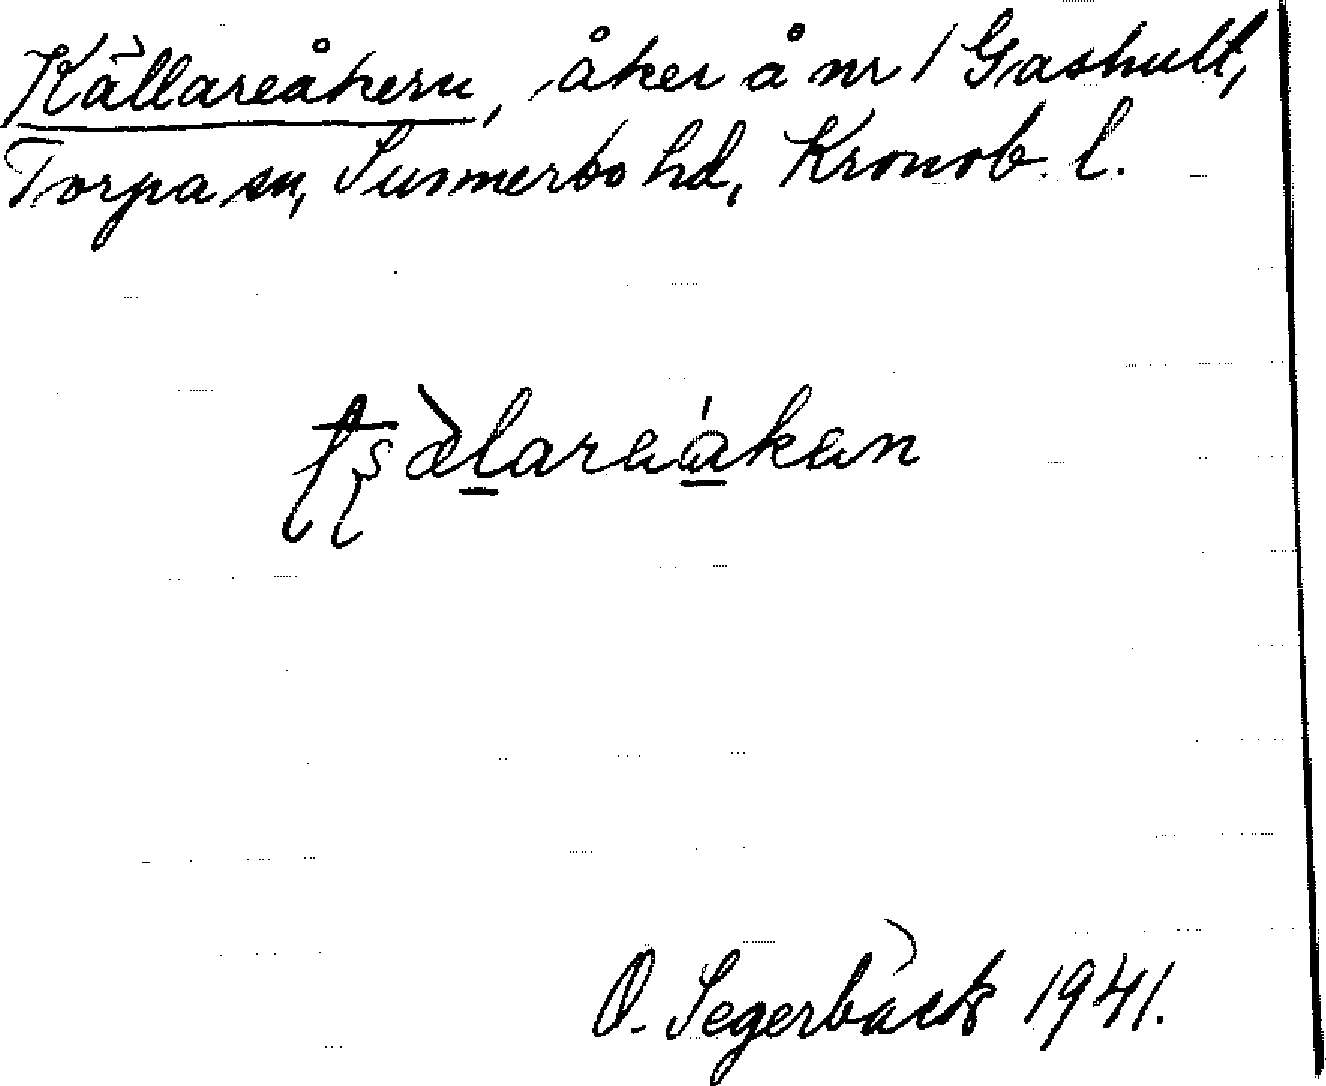 Källareåkern, åker å nr 1 Gashult,
Torpa sn, Sunnerbo hd, Kronob. l.
O. Segerbäck 1941.